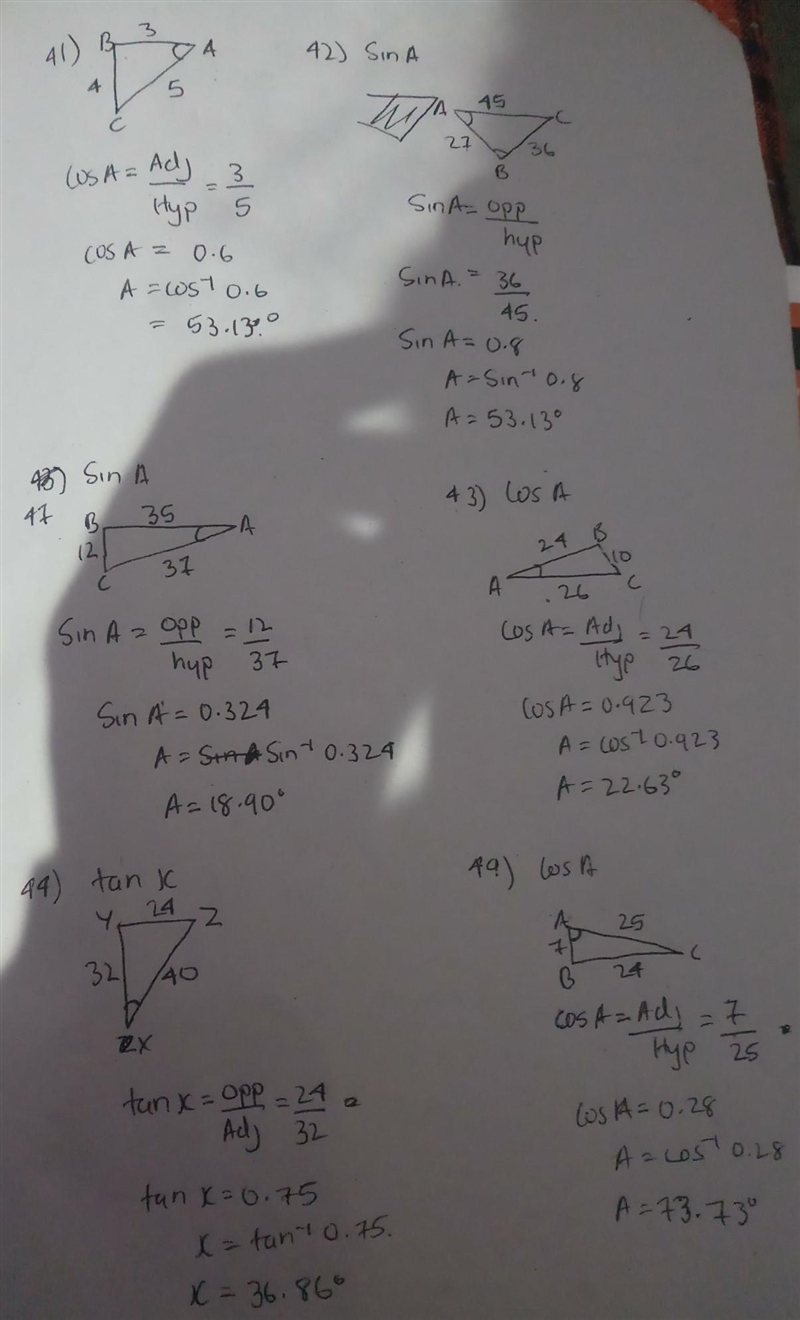 41) B 3 A
4 5
C
Cos A = Adj/Hyp = 3/5
cos A = 0.6
A = cos⁻¹ 0.6
= 53.13°
42) Sin A
A 45 C
27 36
B
Sin A = opp/hyp
Sin A = 36/45.
Sin A = 0.8
A = Sin⁻¹ 0.8
A = 53.13°
47) Sin A
B 35 A
12 37
C
Sin A = opp/hyp = 12/37
Sin A = 0.324
A = Sin⁻¹ 0.324
A = 18.90°
43) Cos A
24 B
10
A 26 C
Cos A = Adj/Hyp = 24/26
Cos A = 0.923
A = cos⁻¹ 0.923
A = 22.63°
44) tan X
Y 24 Z
32 40
X
tan X = opp/Adj = 24/32
tan X = 0.75
X = tan⁻¹ 0.75.
X = 36.86°
49) Cos A
A 25
7 C
B 24
Cos A = Adj/Hyp = 7/25
Cos A = 0.28
A = cos⁻¹ 0.28
A = 73.73°